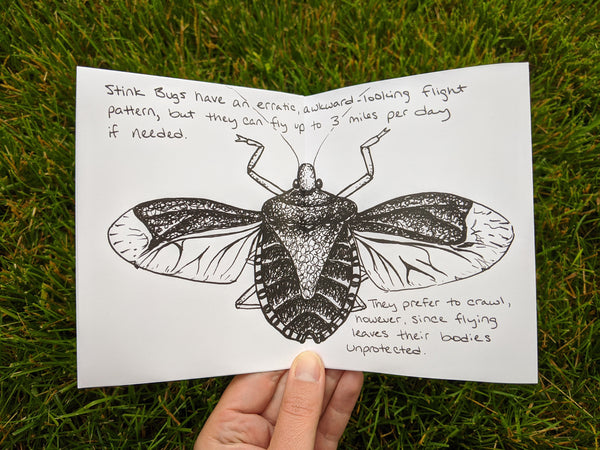 Stink Bugs have an erratic, awkward-looking flight
pattern, but they can fly up to 3 miles per day
if needed.
They prefer to crawl,
however, since flying
leaves their bodies
unprotected.